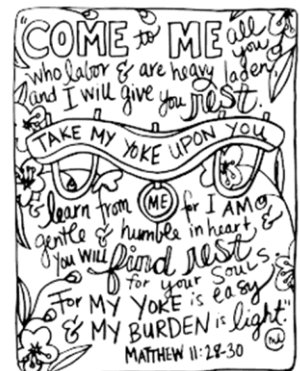 "COME to ME all
you
who labor & are heavy laden,
and I will give you rest.
TAKE MY YOKE UPON YOU
& learn from ME for I AM
gentle & humble in heart, &
you will find rest
for your souls.
For MY YOKE is easy
& MY BURDEN is light."
MATTHEW 11:28-30